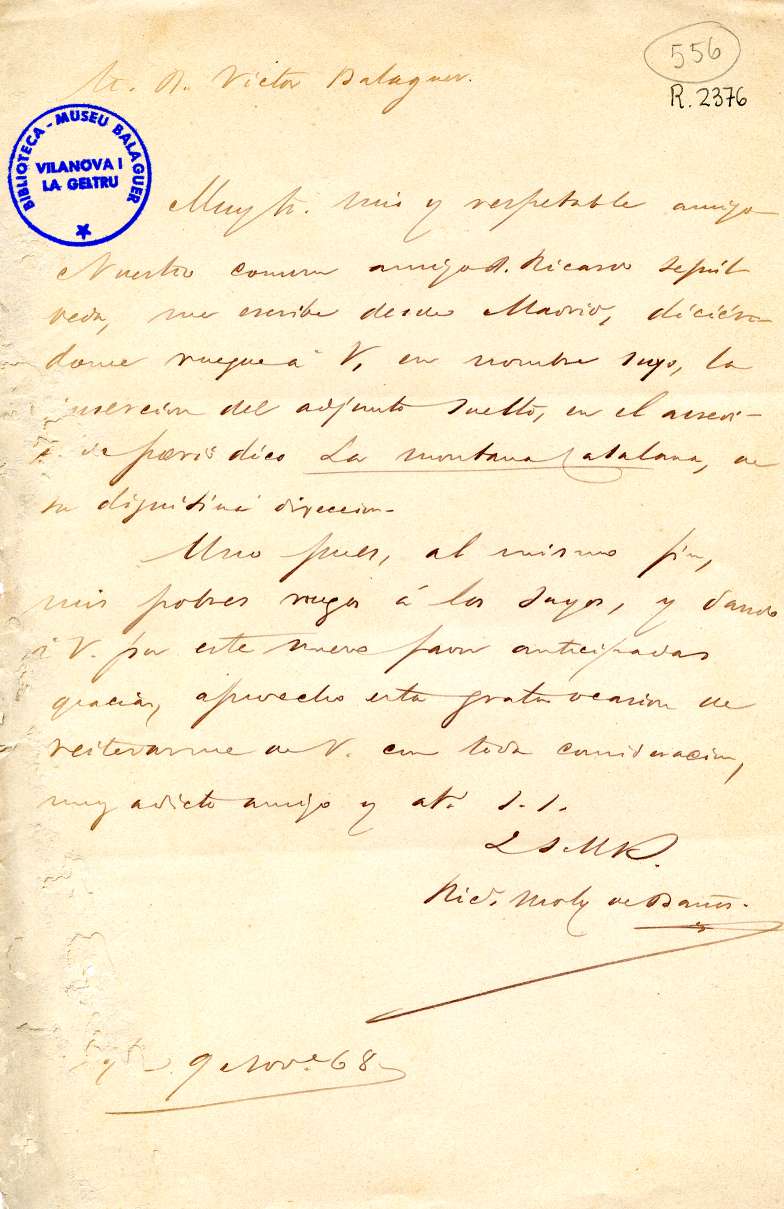 556
R. 2376
Sr. D. Victor Balaguer.
BIBLIOTECA - MUSEU BALAGUER
VILANOVA I
LA GELTRU
Muy Sr. mio y respetable amigo
Nuestro comun amigo D. Ricardo Sepúl
veda, me escribe desde Madrid, dicién
dome ruegue á V, en nombre suyo, la
insercion del adjunto suelto, en el
periódico La montaña Catalana, de
su dignisima direccion.
Uno pues, al mismo fin,
mis pobres ruegos á los suyos, y dando
á V. por este nuevo favor anticipadas
gracias, aprovecho esta grata ocasion de
reiterarme de V. con toda consideracion,
muy adicto amigo y at. S. S.
Q S M B.
Ric. Moly de Baños.
9 Nov.e 68